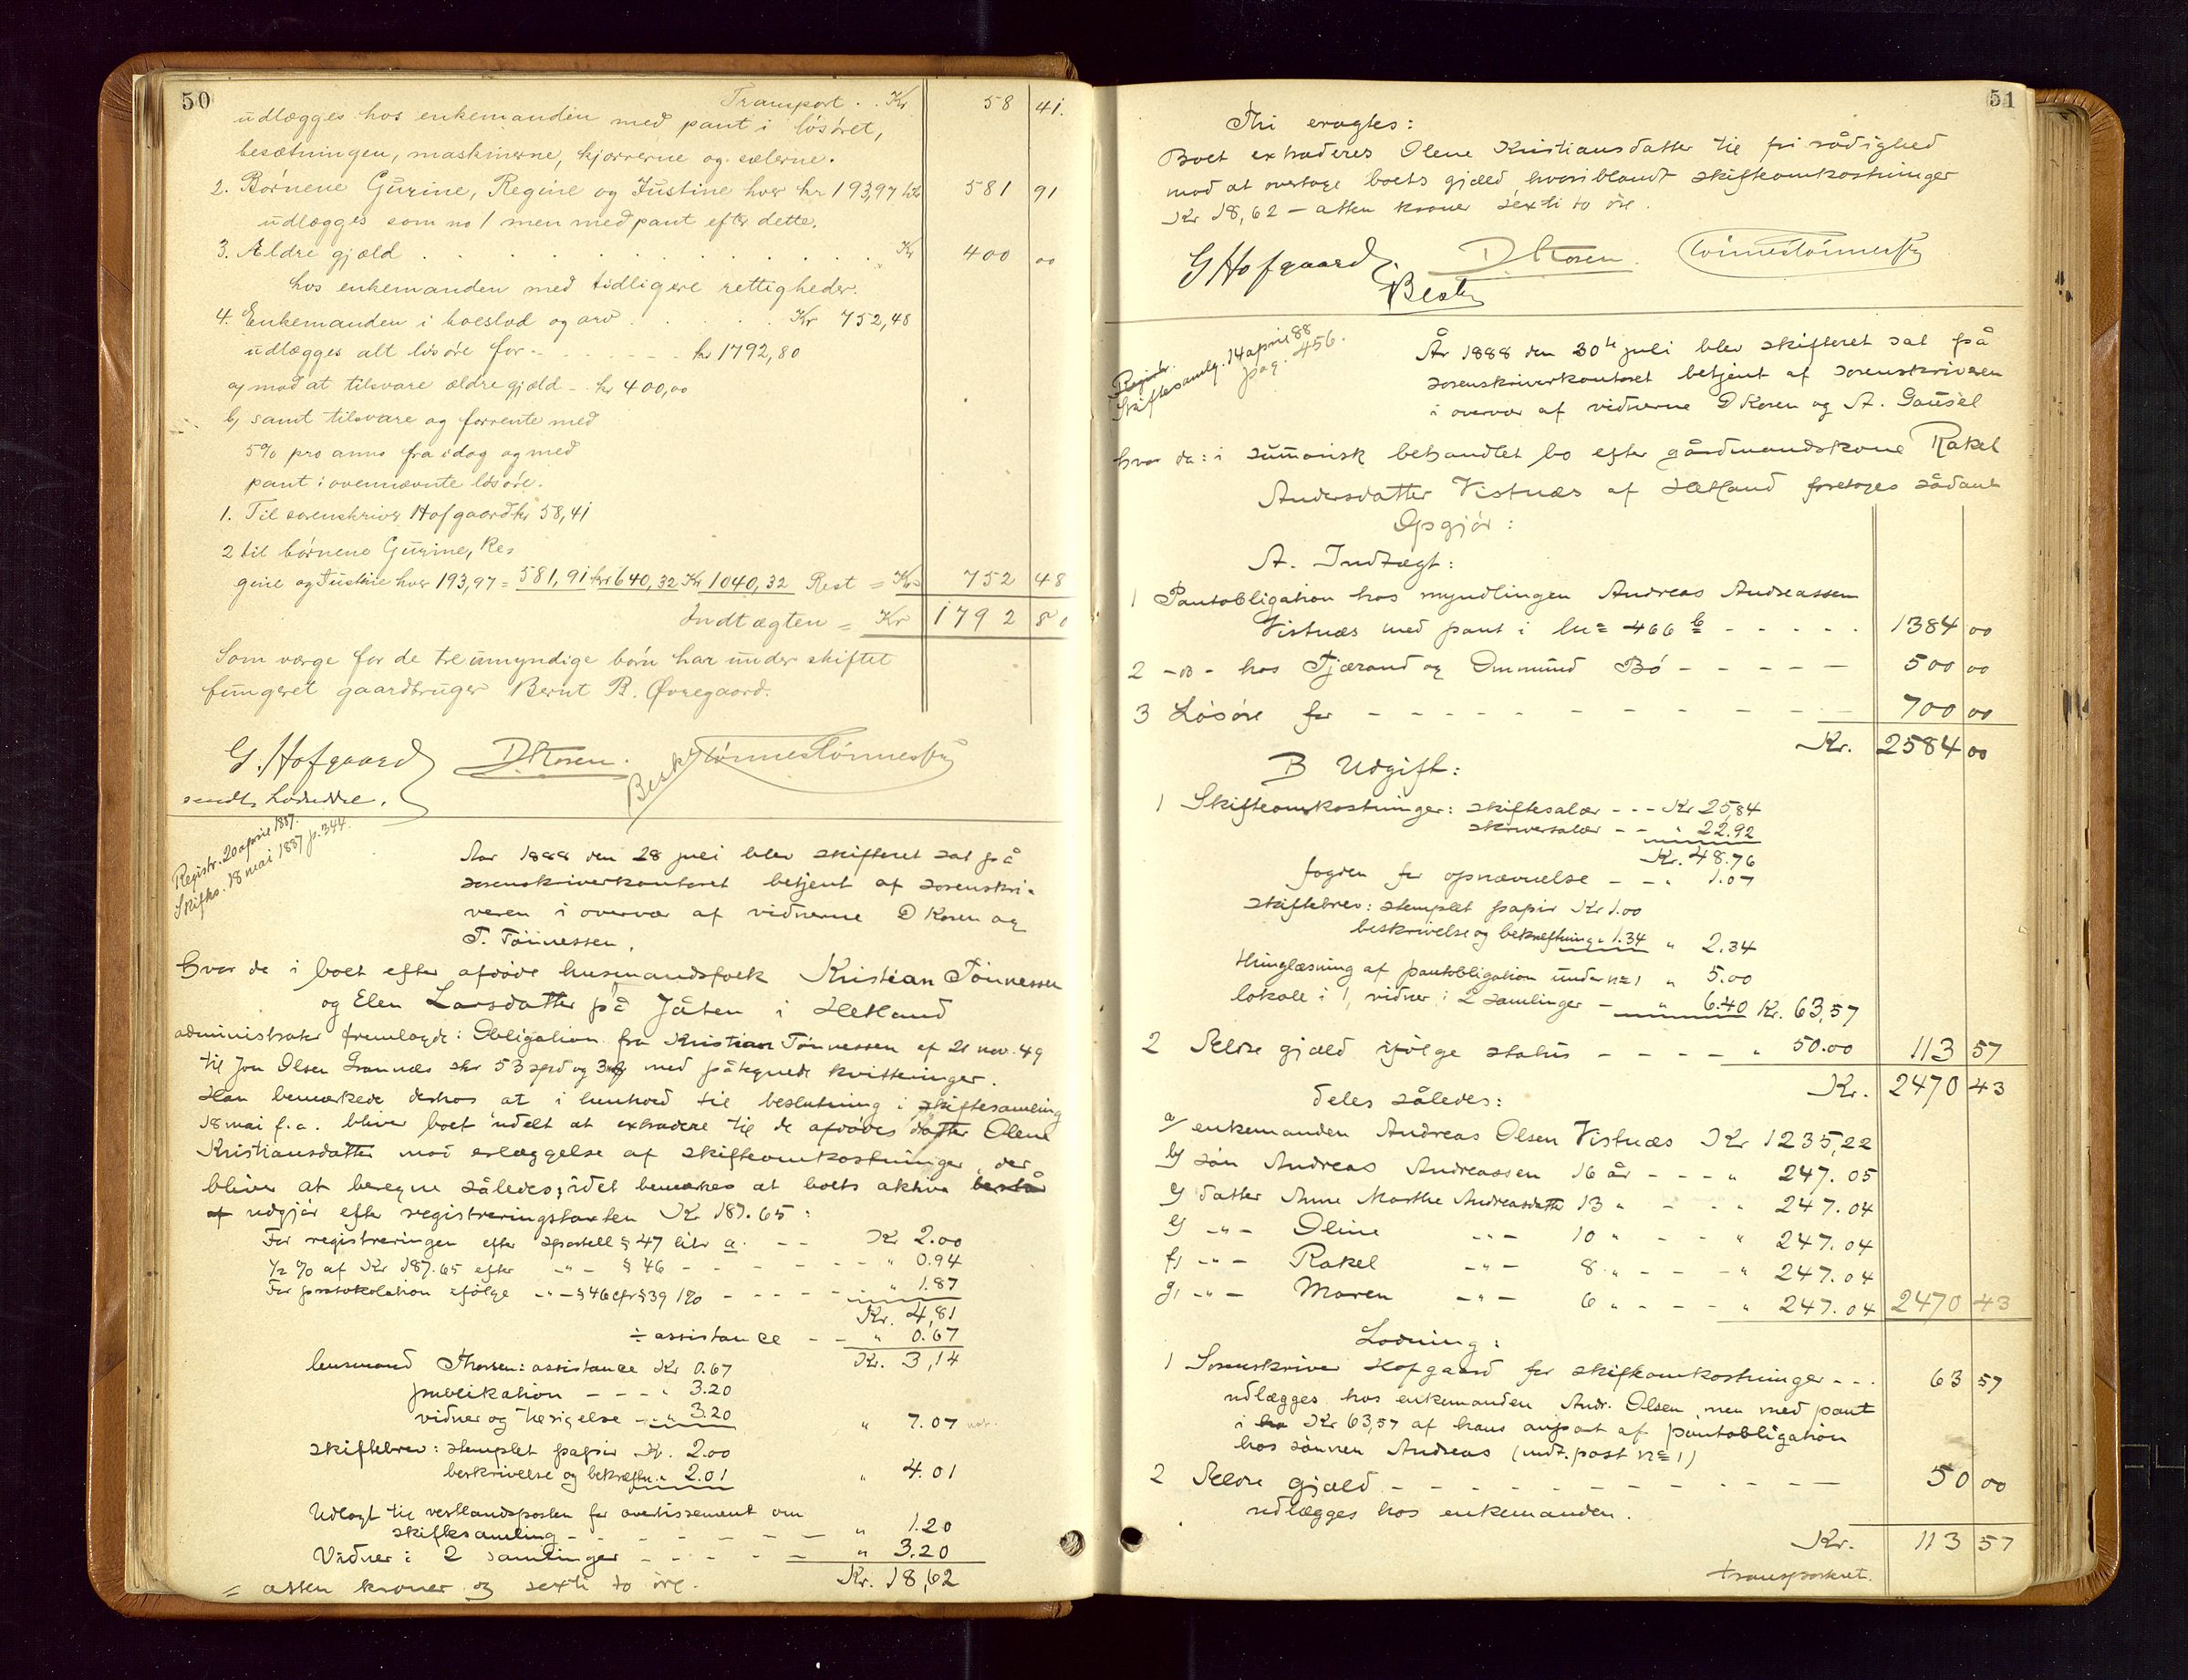 50
Transport . . Kr 58 41.
udlægges hos enkemanden med pant i løsøret,
besætningen, maskinerne, kjærrerne og sælerne.
2. Børnene Gurine, Regine og Justine hver kr 193,97 581 91
udlægges som no 1 men med pant efter dette.
3. Ældre gjæld . . . . . . Kr 400 00
hos enkemanden med tidligere rettigheder.
4. Enkemanden i boeslod og arv . . . . Kr 752,48
udlægges alt løsøre for - - - - - kr 1792,80
a, mod at tilsvare ældre gjæld - kr 400,00
b, samt tilsvare og forrente med
5% pro anno fra idag og med
pant i ovennævnte løsøre.
1. Til sorenskriver Hofgaard kr 58,41
2 til børnene Gurine, Re-
gine og Justine hver 193,97 = 581,91 kr 640,32 Kr 1040,32 Rest = Kr 752 48
Indtægten = Kr 1792 80
Som værge for de tre umyndige børn har under skiftet
fungeret gaardbruger Bernt B. Øvregaard.
G. Hofgaard D Kosen. Besk TønnesTønnessen
sendt Lodsedde.
Registr. 20 april 1887.
Skifts. 18 mai 1887 p. 344.
Aar 1888 den 28 juli blev skifteret sat på
sorenskriverkontoret betjent af sorenskri-
veren i overvær af vidnerne D Kosen og
T. Tönnessen.
Hvor da i boet efter afdøde husmandsfolk Kristian Tönnessen
og Elen Larsdatter på Jåten i Hetland
administrator fremlagde: Obligation fra Kristian Tönnessen af 21 nov. 49
til Jon Olsen Grannæs stor 53 spd og 3 med påtegnede kvitteringer.
Han bemærkede derhos at i henhold til beslutning i skiftesamling
18 mai f.a. bliver boet udelt at extradere til de afdödes datter Olene
Kristiansdatter mod erlæggelse af skifteomkostninger, der
bliver at beregne således; idet bemærkes at boets aktiva består
af udgjör efter registreringstaxten Kr 187.65:
For registreringen efter sportell § 47 litr a. - - Kr 2.00
1/2 % af Kr 187.65 efter -"- § 46 - - - - " 0.94
For protokolation ifølge -"- § 46 cfr § 39 1% - - - - " 1.87
Kr. 4,81
÷ assistance - - " 0.67
Kr. 3,14
lensmand Thorsen: assistance Kr 0.67
publikation - - - " 3.20
vidner og tilsigelse - - " 3.20 " 7.07
skiftebrev: stemplet papir Kr. 2.00
beskrivelse og bekræftn. " 2.01 " 4.01
Udlagt til vestlandsposten for avertissement om
skiftesamling - - - - - - " 1.20
Vidner i 2 samlinger - - - - - " 3.20
= atten kroner og sexti to öre. Kr. 18,62
51
Thi eragtes:
Boet extraderes Olene Kristiansdatter til fri rådighed
mod at overtage boets gjæld, hvoriblandt skifteomkostninger
Kr 18,62 - atten kroner sexti to öre.
G Hofgaard D Kosen. TønnesTønnessen
Besk
Registr.
Skiftesamlg. 14 april 88
pag. 456.
År 1888 den 30te juli blev skifteret sat på
sorenskriverkontoret betjent af sorenskriveren
i overvær af vidnerne D Kosen og A. Gausel
hvor da: i summarisk behandlet bo efter gårdmandskone Rakel
Andersdatter Vistnæs af Hetland foretoges sådant
Opgjör:
A. Indtægt:
1 Pantobligation hos myndlingen Andreas Andreassen
Vistnæs med pant i lnr 466 b - - - - - 1384 00
2 -"- hos Tjærand og Ommund Bö - - - - - 500 00
3 Lösöre for - - - - - - - - - - 700 00
Kr. 2584 00
B Udgift:
1 Skifteomkostninger: skiftesalær - - - Kr 25,84
skriversalær - - " 22.92
Kr. 48.76
fogden for opnævnelse - - " 1.07
skiftebrev: stemplet papir Kr 1.00
beskrivelse og bekræftning " 1.34 " 2.34
thinglæsning af pantobligation under nr 1 " 5.00
lokale i 1, vidner i 2 samlinger - " 6.40 Kr. 63,57
2 Ældre gjæld ifölge status - - - - " 50.00 113 57
Kr. 2470 43
deles således:
a/ enkemanden Andreas Olsen Vistnæs Kr 1235,22
b/ sön Andreas Andreassen 16 år - - - " 247.05
c/ datter Anne Marthe Andreasdatter 13 " - - " 247.04
e/ -"- Oline -"- 10 " - - " 247.04
f, -"- Rakel -"- 8 " - - - " 247.04
g, -"- Maren -"- 6 " - - - " 247.04 2470 43
Lodning:
1 Sorenskriver Hofgaard for skifteomkostninger - - - 63 57
udlægges hos enkemanden Andr. Olsen, men med pant
i Kr 63,57 af hans anpart af pantobligation
hos sönnen Andreas (indt. post nr 1)
2 Ældre gjæld - - - - - - - - - 50 00
udlægges hos enkemanden.
Kr. 113 57
transporteret.